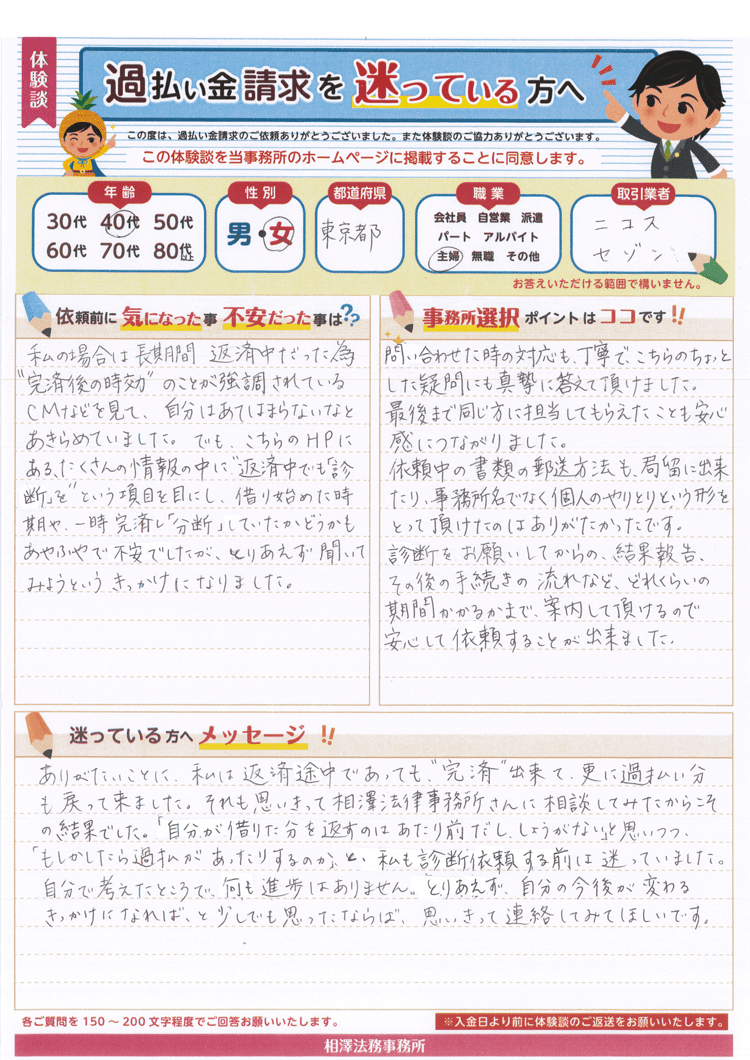 体験談
過払い金請求を迷っている方へ
この度は、過払い金請求のご依頼ありがとうございました。また体験談のご協力ありがとうございます。
この体験談を当事務所のホームページに掲載することに同意します。
年齢
30代 40代 50代
60代 70代 80代以上
性別
男・女
都道府県
東京都
職業
会社員 自営業 派遣
パート アルバイト
主婦 無職 その他
取引業者
ニコス
セゾン
お答えいただける範囲で構いません。
依頼前に気になった事 不安だった事は??
私の場合は長期間 返済中だった為
"完済後の時効"のことが強調されている
CMなどを見て、自分はあてはまらないなと
あきらめていました。でも、こちらのHPに
ある、たくさんの情報の中に"返済中でも「診
断」を"という項目を目にし、借り始めた時
期や、一時完済し「分断」していたかどうかも
あやふやで不安でしたが、とりあえず聞いて
みようという きっかけになりました。
事務所選択 ポイントはココです!!
問い合わせた時の対応も、丁寧で、こちらのちょっと
した疑問にも真摯に答えて頂けました。
最後まで同じ方に担当してもらえたことも安心
感につながりました。
依頼中の書類の郵送方法も、局留に出来
たり、事務所名でなく個人のやりとりという形を
とって頂けたのはありがたかったです。
診断をお願いしてからの、結果報告、
その後の手続きの流れなど、どれくらいの
期間かかるかまで、案内して頂けるので
安心して依頼することが出来ました。
迷っている方へ メッセージ!!
ありがたいことに、私は返済途中であっても、"完済"出来て、更に過払い分
も戻って来ました。それも思いきって相澤法律事務所さんに相談してみたからこそ
の結果でした。「自分が借りた分を返すのはあたり前だし、しょうがない」と思いつつ、
「もしかしたら過払がよあったりするのか、と、私も診断依頼する前は迷っていました。
自分で考えたところで、何も進歩はありません。とりあえず、自分の今後が変わる
きっかけになれば、と少しでも思ったならば、思いきって連絡してみてほしいです。
各ご質問を150～200文字程度でご回答お願いいたします。
※入金日より前に体験談のご返送をお願いいたします。
相澤法務事務所